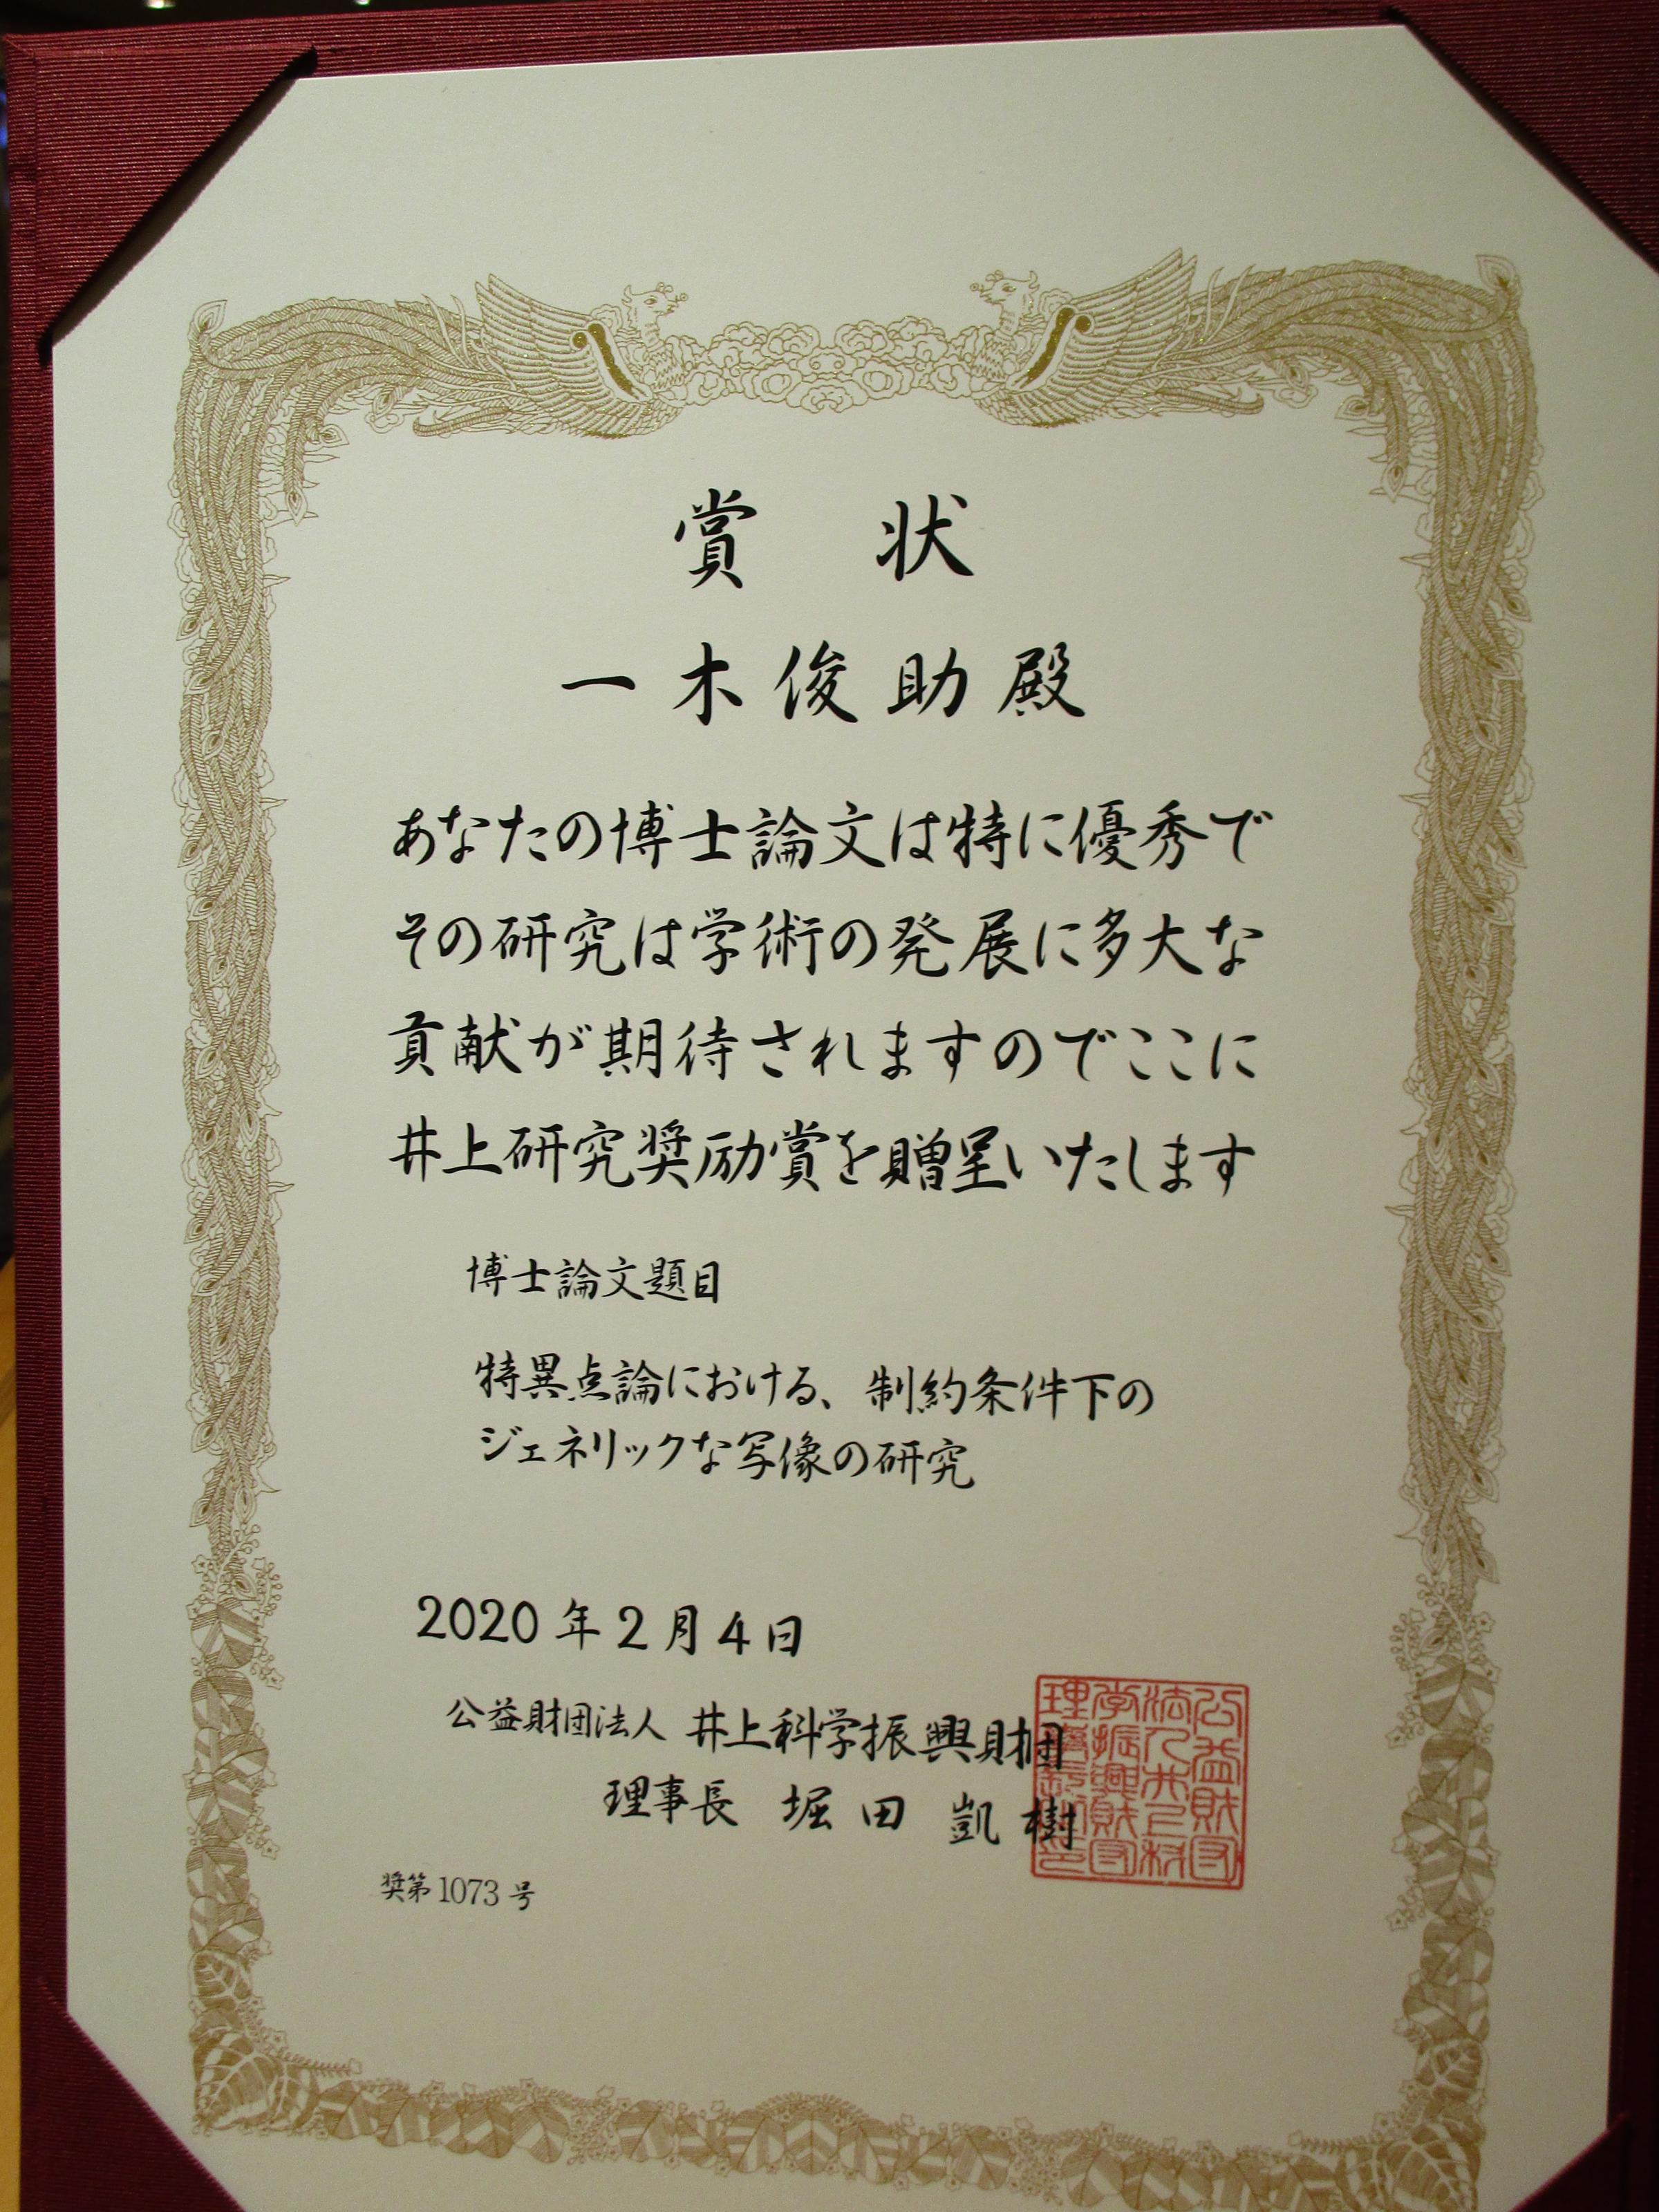 賞 状
一木俊助殿
あなたの博士論文は特に優秀で
その研究は学術の発展に多大な
貢献が期待されますのでここに
井上研究奨励賞を贈呈いたします
博士論文題目
特異点論における、制約条件下の
ジェネリックな写像の研究
2020年2月4日
公益財団法人 井上科学振興財団
理事長 堀田 凱樹
奨第1073号